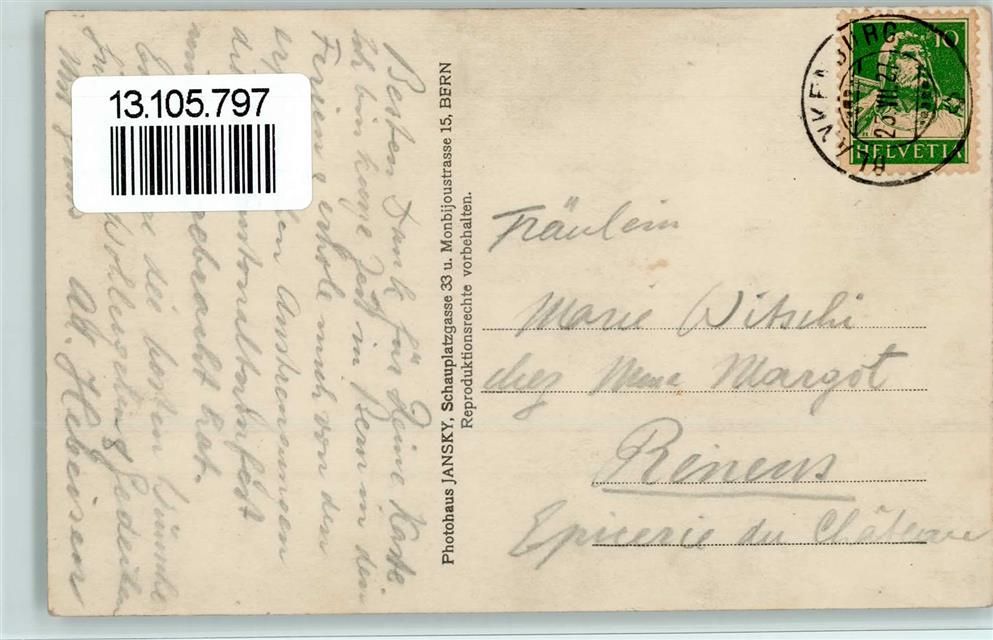 13.105.797
Besten Dank für Deine Karte.
Ich bin kurze Zeit in Bern in den
Ferien & erhole mich von den
Anstrengungen
die
gebracht hat.
die besten Wünsche
Wohlergehen & Gedeihen
Alb. Hebeisen
Photohaus JANSKY, Schauplatzgasse 33 u. Monbijoustrasse 15, BERN
Reproduktionsrechte vorbehalten.
10
HELVETIA
Fräulein
Marie Witschi
chez Mme Margot
Renens
Epicerie du Château